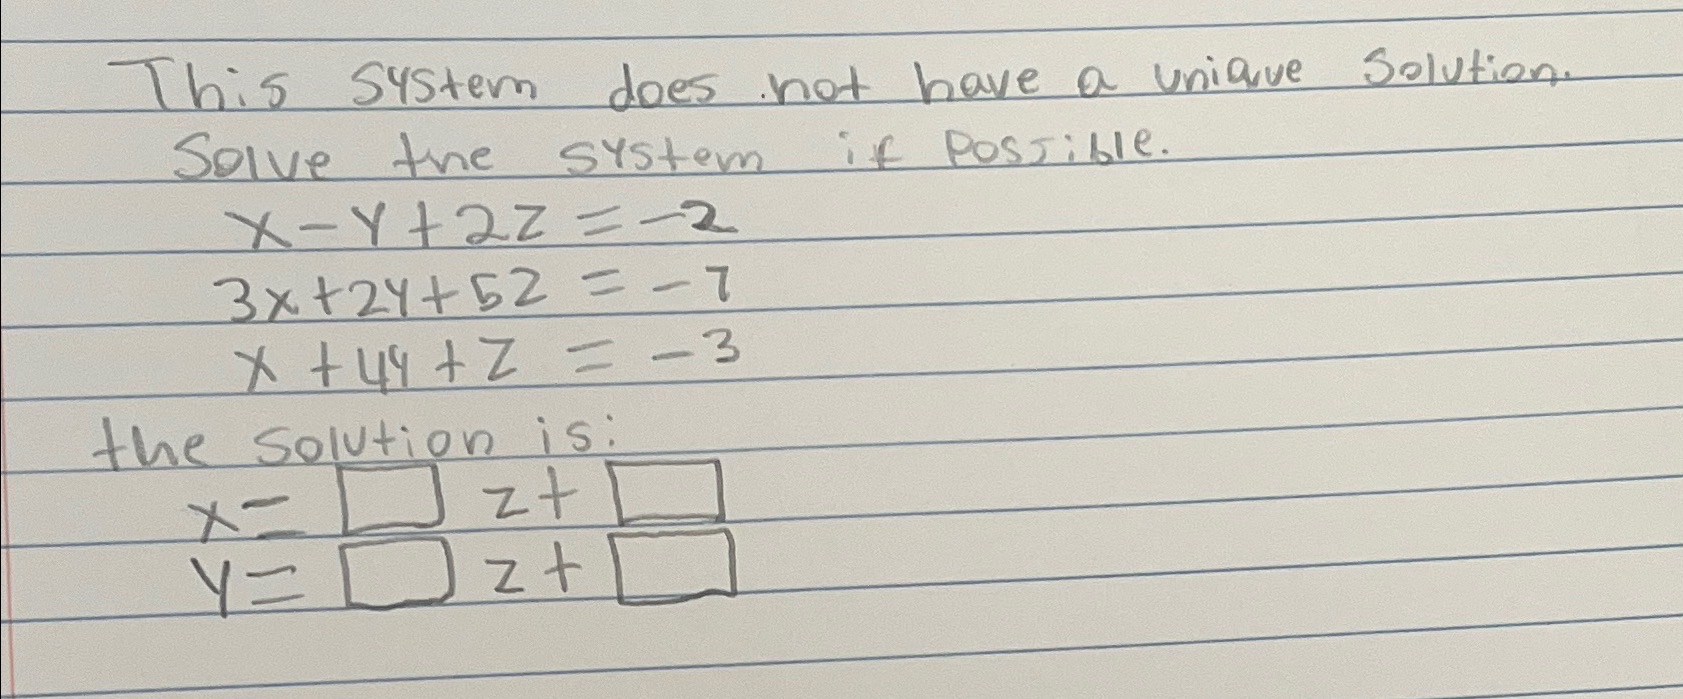 This system does not have a unique solution.
Solve the system if possible.
x-y+2z=-2
3x+2y+5z=-7
x+4y+z=-3
the solution is:
x=□z+□
y=□z+□